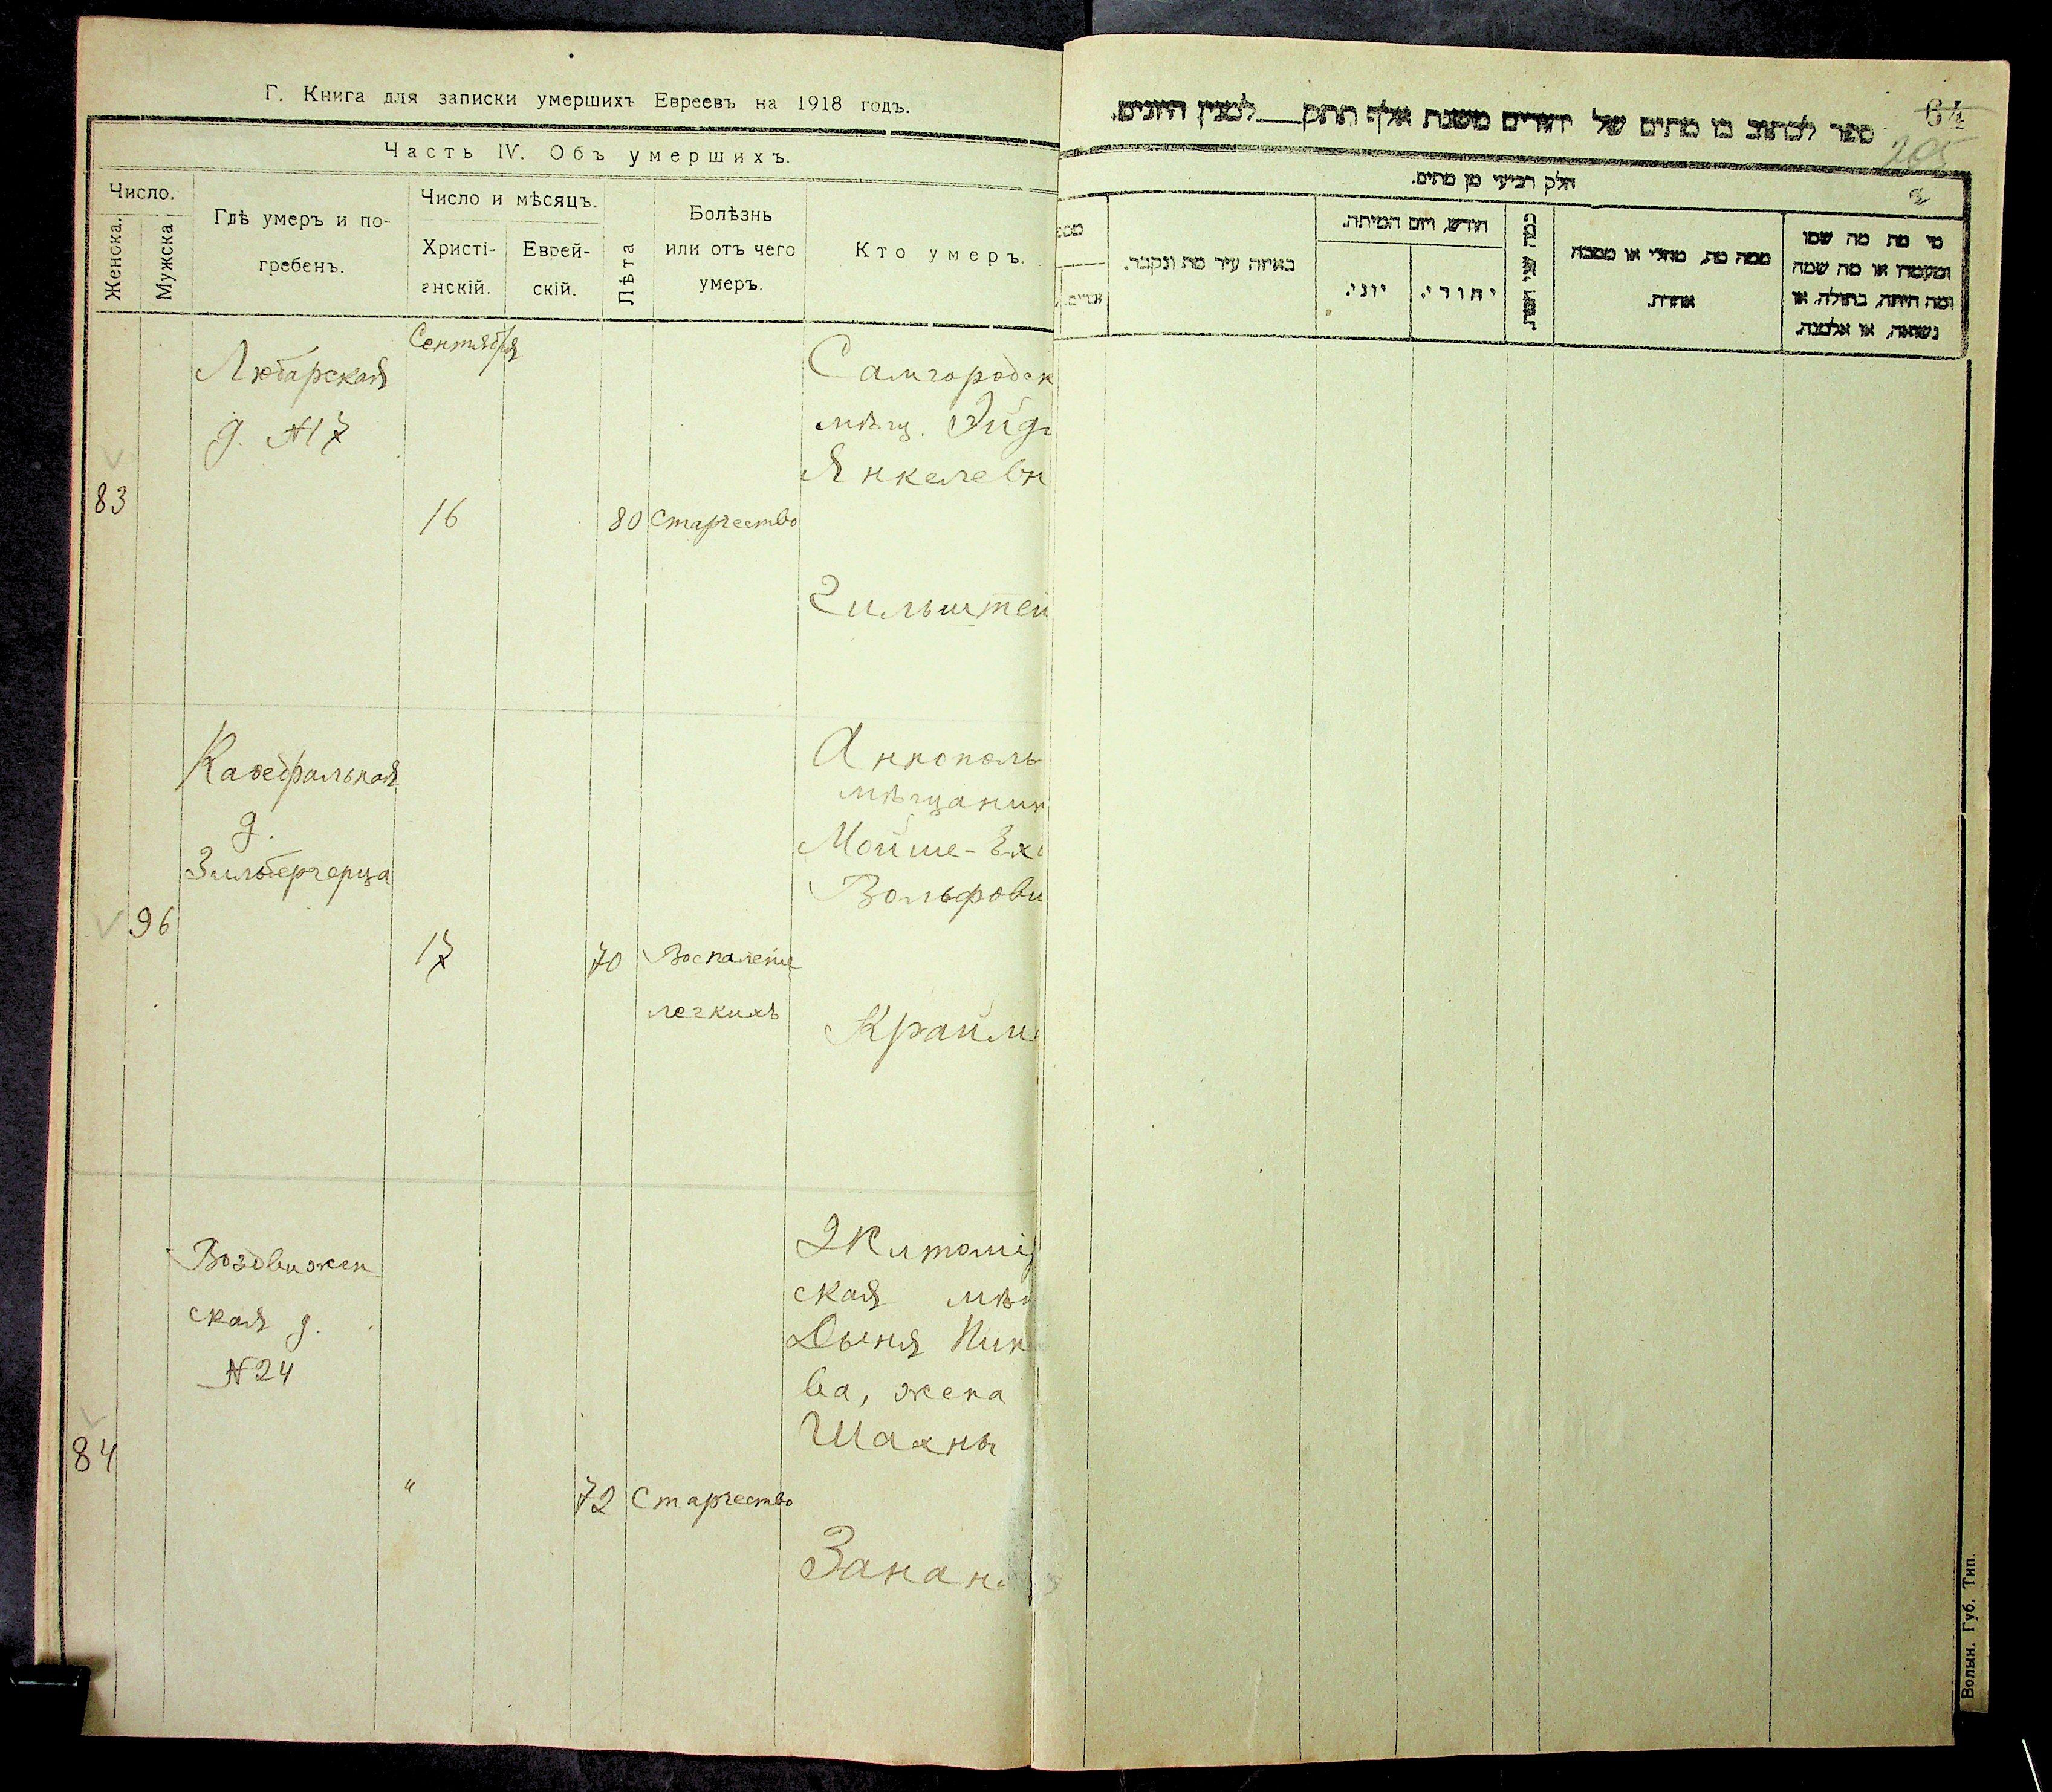 Г. Книга для записки умершихъ Евреевъ на 1918 годъ.
Часть IV. Объ умершихъ.
Число.
Женска.
Мужска
Гдѣ умеръ и по-
гребенъ.
Число и мѣсяцъ.
Христі-
анскій.
Еврей-
скій.
Лѣта
Болѣзнь
или отъ чего
умеръ.
Кто умеръ.
Сентября
Любарская
д. №17
83
16
80
Старчество
Самгородск
мѣщ.
Янкелевн
Гильштей
Каѳедральная
д.
Зильбергерца
96
17
70
Воспаленіе
легкихъ
Аннополь
мѣщанин
Мойше-
Вольфови
Крайм
Воздвижен
ская д.
№24
84
"
72
Старчество
Житомі
ская мѣ
Дыня Пин
ва, жена
Шахны
Занан
64
205
ספר לכתוב בו מתים של יהודים משנת אלף תתק___למנין היונים.
חלק רביעי מן מתים.
באיזה עיר מת ונקבר.
חודש, ויום המיתה.
יוני.
יהודי.
ממה מת, מחלי או מסבה
אחרת.
מי מת מה שמו
ומעמדו או מה שמה
ומה היתה, בתולה, או
נשואה, או אלמנה.
Волын. Губ. Тип.